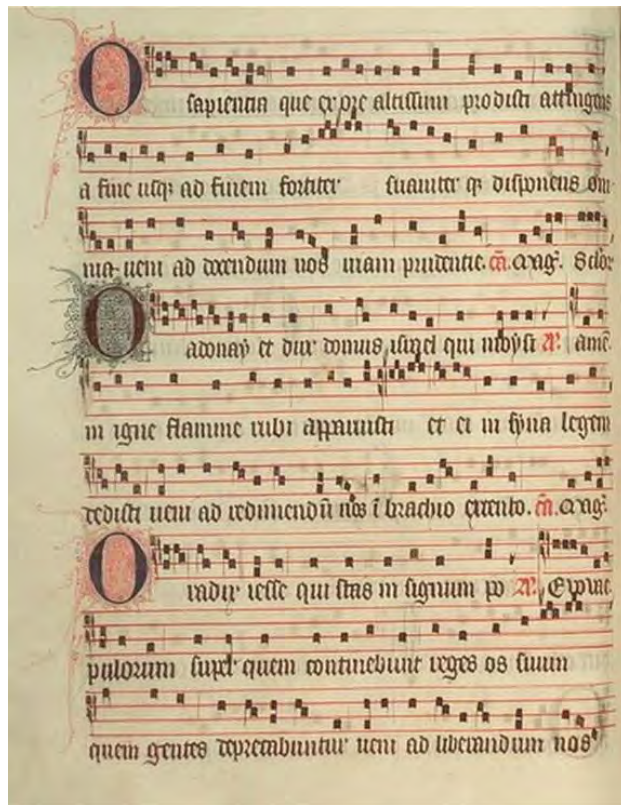 O sapientia que ex ore altissimi prodisti attingens
a fine usq; ad finem fortiter suauiter q; disponens om
nia ueni ad docendum nos uiam prudentie. c̄a. Mag̃. Sclõr
O adonay et dux domus isrl̃ el qui moysi A. amē.
in igne flamme rubi apparuisti et ei in syna legem
dedisti ueni ad redimendū nos ī brachio extento. c̄a. Mag̃.
O radix iesse qui stas in signum po A.
pulorum super quem continebunt reges os suum
quem gentes deprecabuntur ueni ad liberandum nos